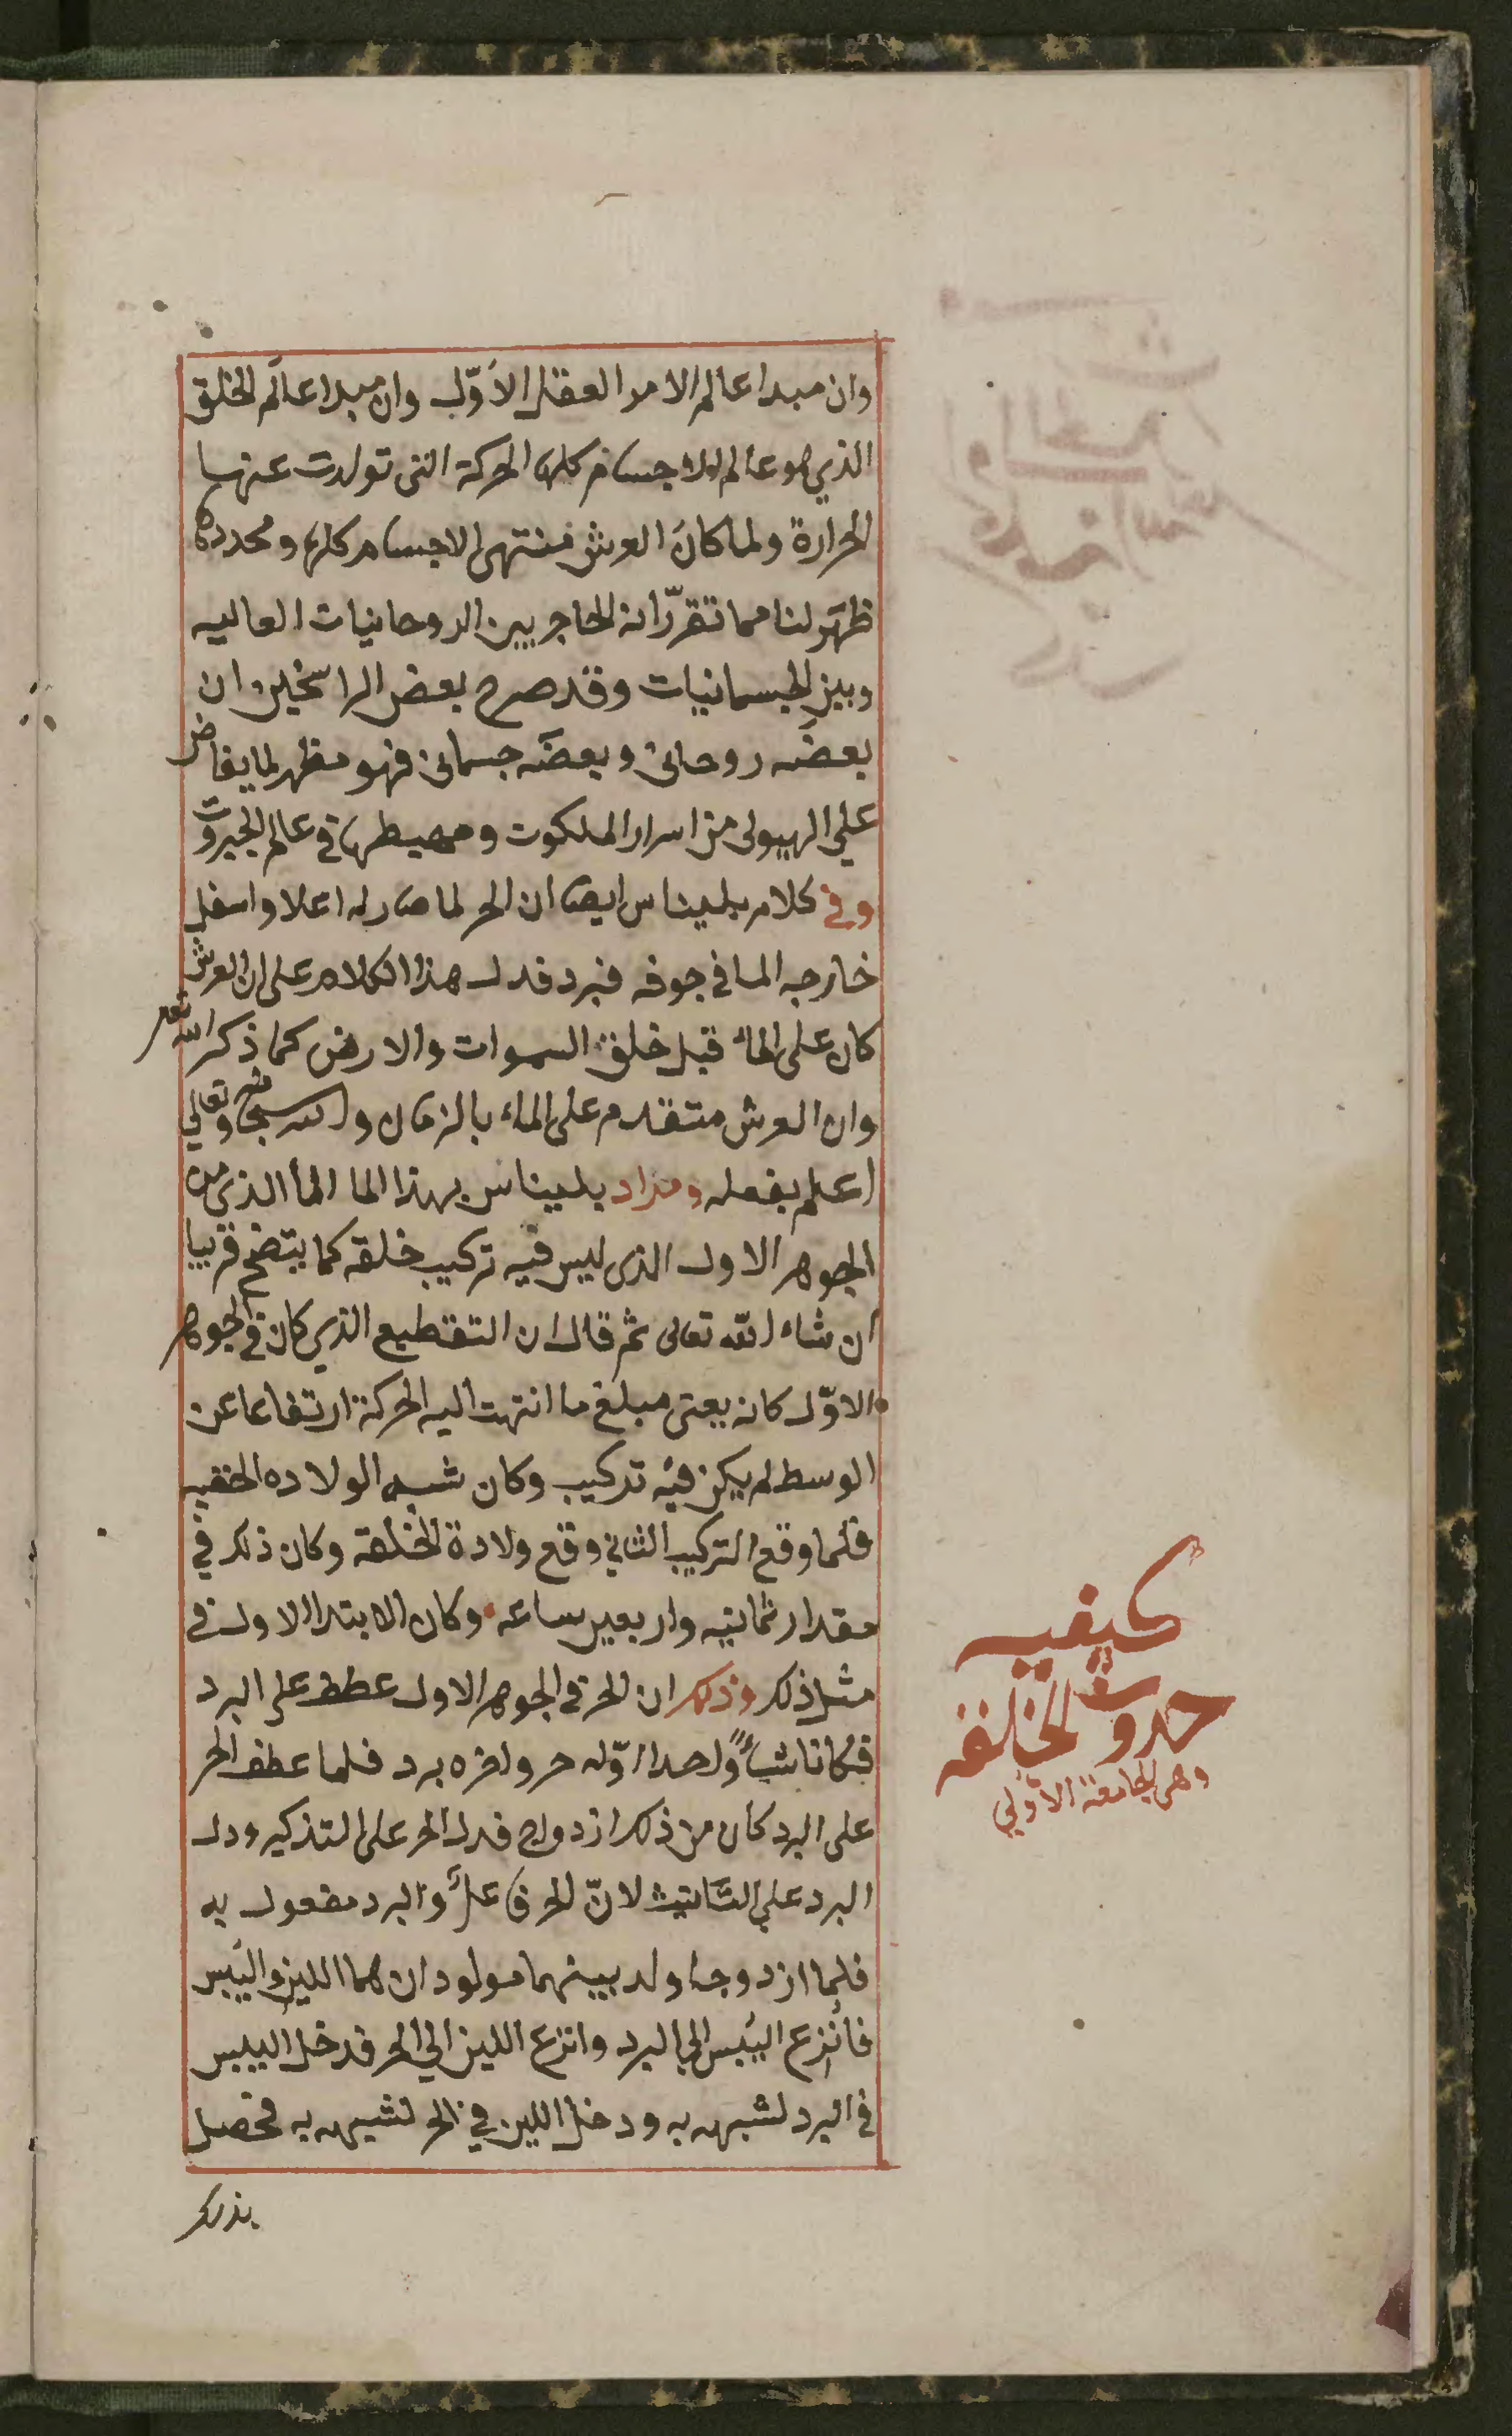 وان مبدا عالم الامر العقل الاوّل وان مبدا عالم الخلق
الذي هو عالم الاجسام كلها الحركة التى تولدت عنها
الحرارة ولما كان العرش منتهى الاجسام كلها ومحددها
ظهر لنا مما تقرّر انه الحاجز بين الروحانيات العاليه
وبين الجسمانيات وقد صرح بعض الراسخين ان
بعضه روحانى وبعضه جسمانى فهو مظهر لما يفاض
على الهيولى من اسرار الملكوت ومهيطها فى عالم الجبروت
وفى كلام بليناس ايضا ان الحر لما صار له اعلا واسفل
خارجه الما فى جوفه فبرد فدل هذا الكلام على ان العرش
كان على الماء قبل خلق السموات والارض كما ذكر الله تعالى
وان العرش متقدم على الماء بالزمان والله سبحانه وتعالي
اعلم بفعله ومراد بليناس بهذا الما الماء الذى من
الجوهر الاول الذى ليس فيه تركيب خلقه كما يتضح قريبا
ان شاء الله تعالى ثم قال ان التقطيع الذي كان فى الجوهر
الاوّل كانه يعنى مبلغ ما انتهت اليه الحركة ارتفاعا عن
الوسط لم يكن فيه تركيب وكان شبه الولاده الخفيه
فلما وقع التركيب الثاني وقع ولادة الخلقة وكان ذلك في
مقدار ثمانيه واربعين ساعه وكان الابتدا الاول فى
مثل ذلك وذلك ان الحر فى الجوهر الاول عطف على البرد
فكانا شيأً واحدا اوّله حر واخره برد فلما عطف الحر
على البرد كان من ذلك ازدواج فدل الحر على التذكير ودل
البرد علي التانيث لانّ الحر فاعل والبرد مفعول به
فلما ازدوجا ولد بينهما مولودان هما اللين واليبس
فانزع اليبس الى البرد وانزع اللين الي الحر فدخل اليبس
فى البرد لشبهه به ودخل اللين في الحر لشبهه به فحصل
بذلك
كيفيه
حدوث الخلقه
وهى الجامعة الأولي